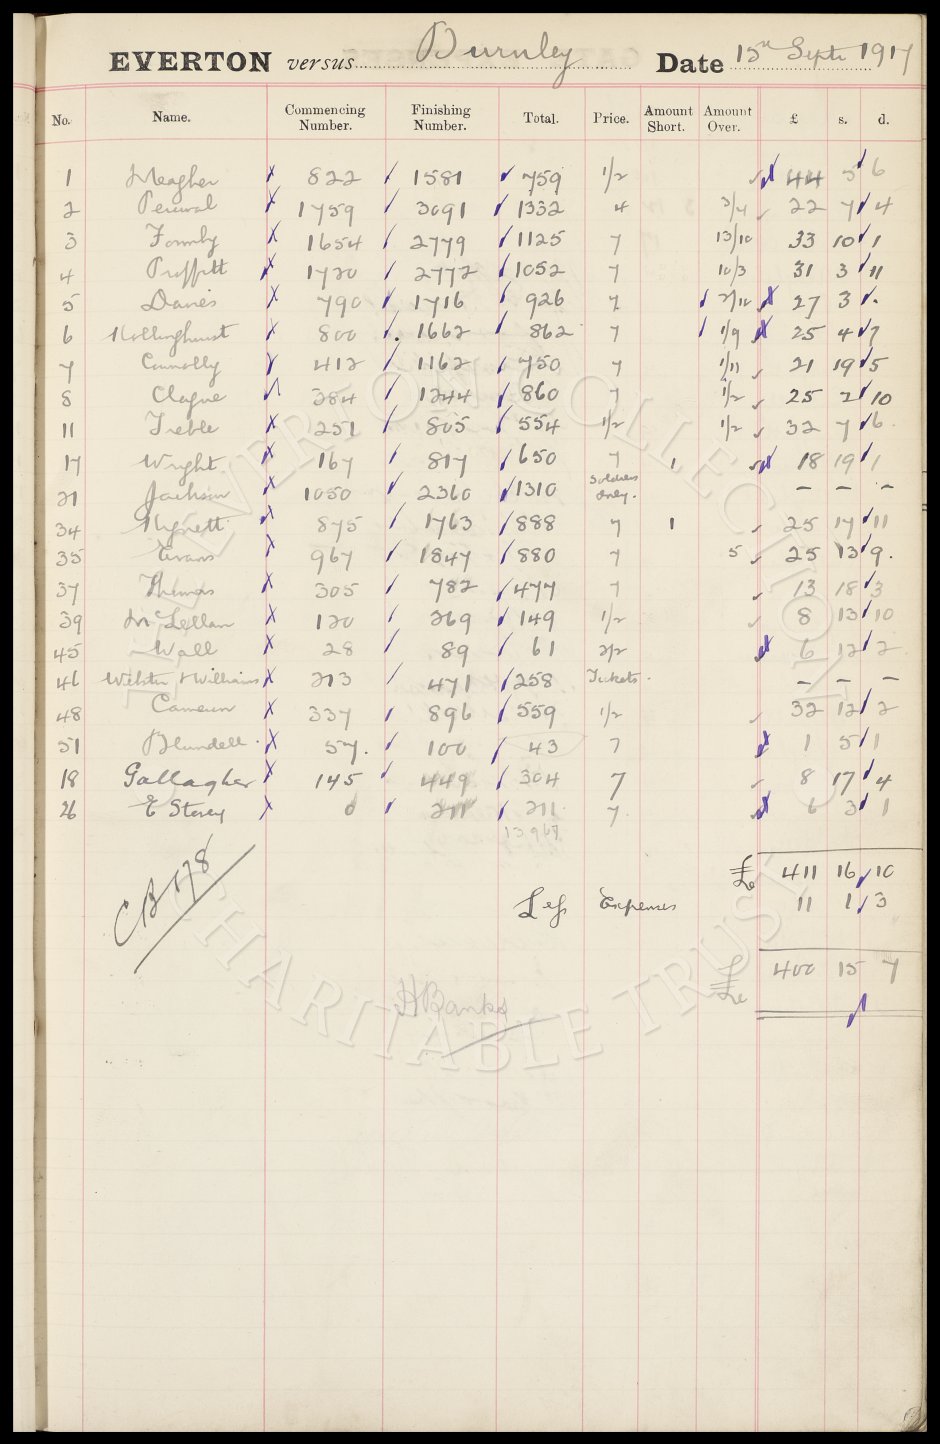 EVERTON versus Burnley Date 15th Sept 1917
No. Name. Commencing Number. Finishing Number. Total. Price. Amount Short. Amount Over. £ s. d.
1 Meagher 822 1581 759 1/2 44 5 6
2 Percival 1759 3091 1332 4 3/4 22 7 4
3 Formby 1654 2779 1125 7 13/10 33 10 1
4 Proffitt 1720 2772 1052 7 10/3 31 3 11
5 Davies 790 1716 926 7 2/10 27 3 .
6 Hollinghurst 800 1662 862 7 1/9 25 4 7
7 Connolly 412 1162 750 7 1/11 21 19 5
8 Clague 384 1244 860 7 1/2 25 2 10
11 Treble 251 805 554 1/2 1/2 32 7 6
17 Wright 167 817 650 7 1 18 19 1
21 Jackson 1050 2360 1310 Soldiers only. - - -
34 Hignett 875 1763 888 7 1 25 17 11
35 Evans 967 1847 880 7 5 25 13 9.
37 Thomas 305 782 477 7 13 18 3
39 McLellan 120 269 149 1/2 8 13 10
45 Wall 28 89 61 2/2 6 12 2
46 Webster & Williams 213 471 258 Tickets. - - -
48 Cameron 337 896 559 1/2 32 12 2
51 Blundell. 57. 100 43 7 1 5 1
18 Gallagher 145 449 304 7 8 17 4
26 E Storey 0 211 211 7 6 3 1
13967
£ 411 16 10
CB 178
Less Expenses 11 1 3
£ 400 15 7
H Banks
EVERTON COLLECTION
CHARITABLE TRUST